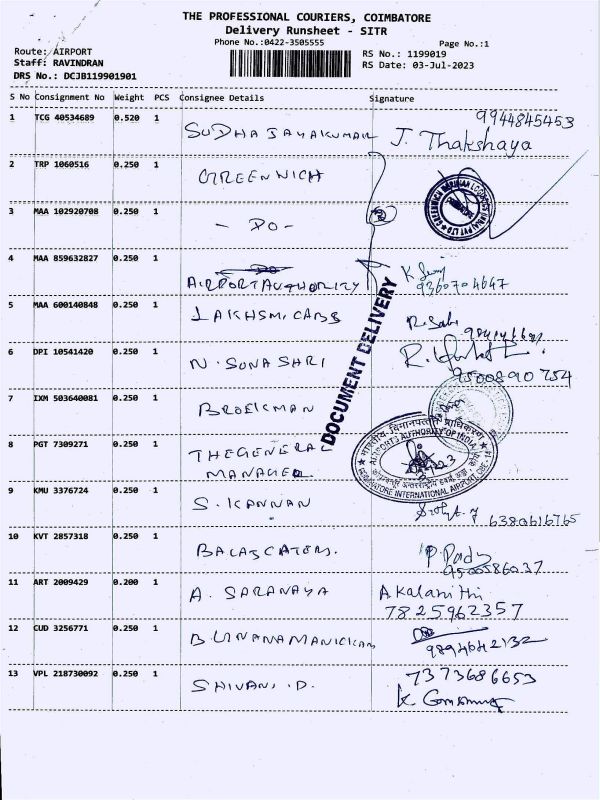 THE PROFESSIONAL COURIERS, COIMBATORE
Delivery Runsheet - SITR
Phone No.:0422-3505555
Page No.:1
Route: AIRPORT
RS No.: 1199019
Staff: RAVINDRAN
RS Date: 03-Jul-2023
DRS No.: DCJB119901901
S No Consignment No Weight PCS Consignee Details Signature
1 TCG 40534689 0.520 1 SUDHA JAYAKUMAR J. Thakshaya 9944845453
2 TRP 1060516 0.250 1 GREENWICH
3 MAA 102920708 0.250 1 - DO -
4 MAA 859632827 0.250 1 AIRPORT AUTHORITY 9360704647
5 MAA 600140848 0.250 1 LAKHSMI CABS
6 DPI 10541420 0.250 1 N. SONA SHRI 9500890754
DOCUMENT DELIVERY
7 IXM 503640081 0.250 1 BROEKMAN
8 PGT 7309271 0.250 1 THE GENERAL
MANAGER
भारतीय विमानपत्तन प्राधिकरण
AIRPORTS AUTHORITY OF INDIA
COIMBATORE INTERNATIONAL AIRPORT, CBE-14
9 KMU 3376724 0.250 1 S. KANNAN 6380616765
10 KVT 2857318 0.250 1 9500586037
11 ART 2009429 0.200 1 A. SARANAYA A Kalanithi
7825962357
12 CUD 3256771 0.250 1 9894642132
13 VPL 218730092 0.250 1 SHIVANI .D. 7373686653